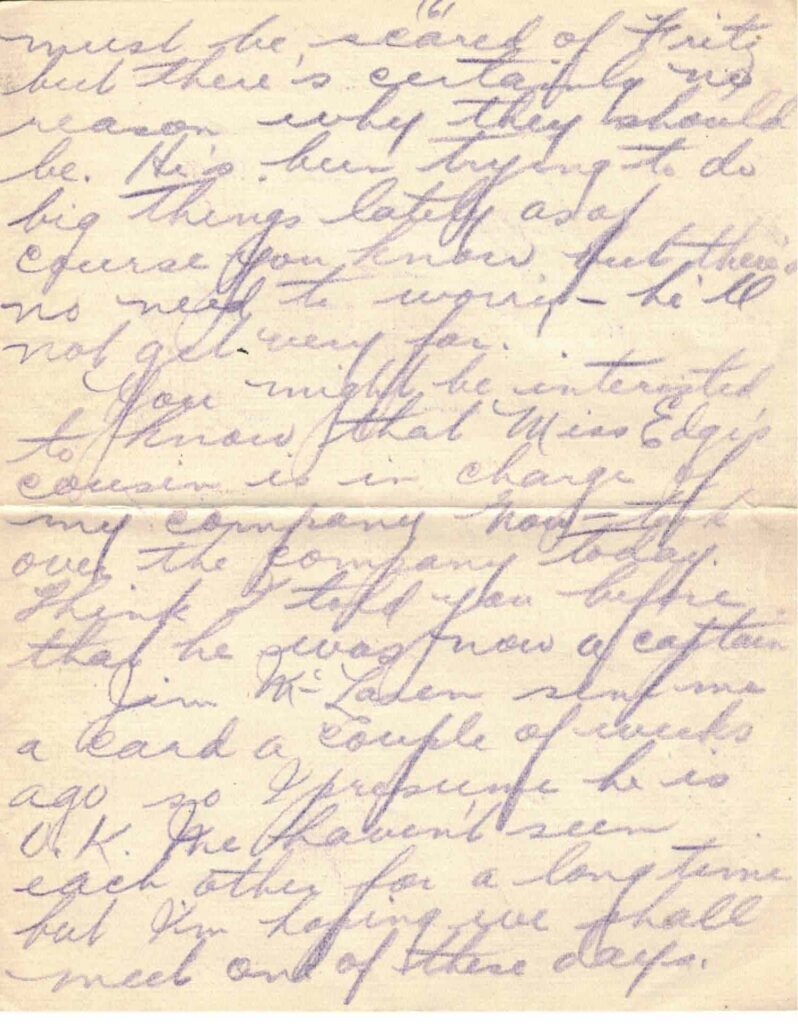 "6"
must be scared of Fritz
but there's certainly no
reason why they should
be. He's been trying to do
big things lately as of
course you know but there's
no need to worry – he'll
not get very far.
You might be interested
to know that Miss Edgi's
cousin is in charge of
my company now – took
over the company today.
Think I told you before
that he was now a captain
Jim McLaren sent me
a card a couple of weeks
ago so I presume he is
O.K. We haven't seen
each other for a long time
but I'm hoping we shall
meet one of these days.